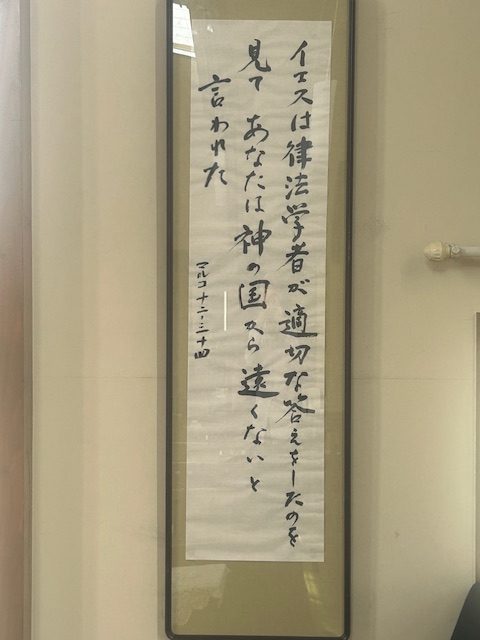 イエスは律法学者が適切な答えをしたのを
見て あなたは神の国から遠くないと
言われた
マルコ十二・三十四